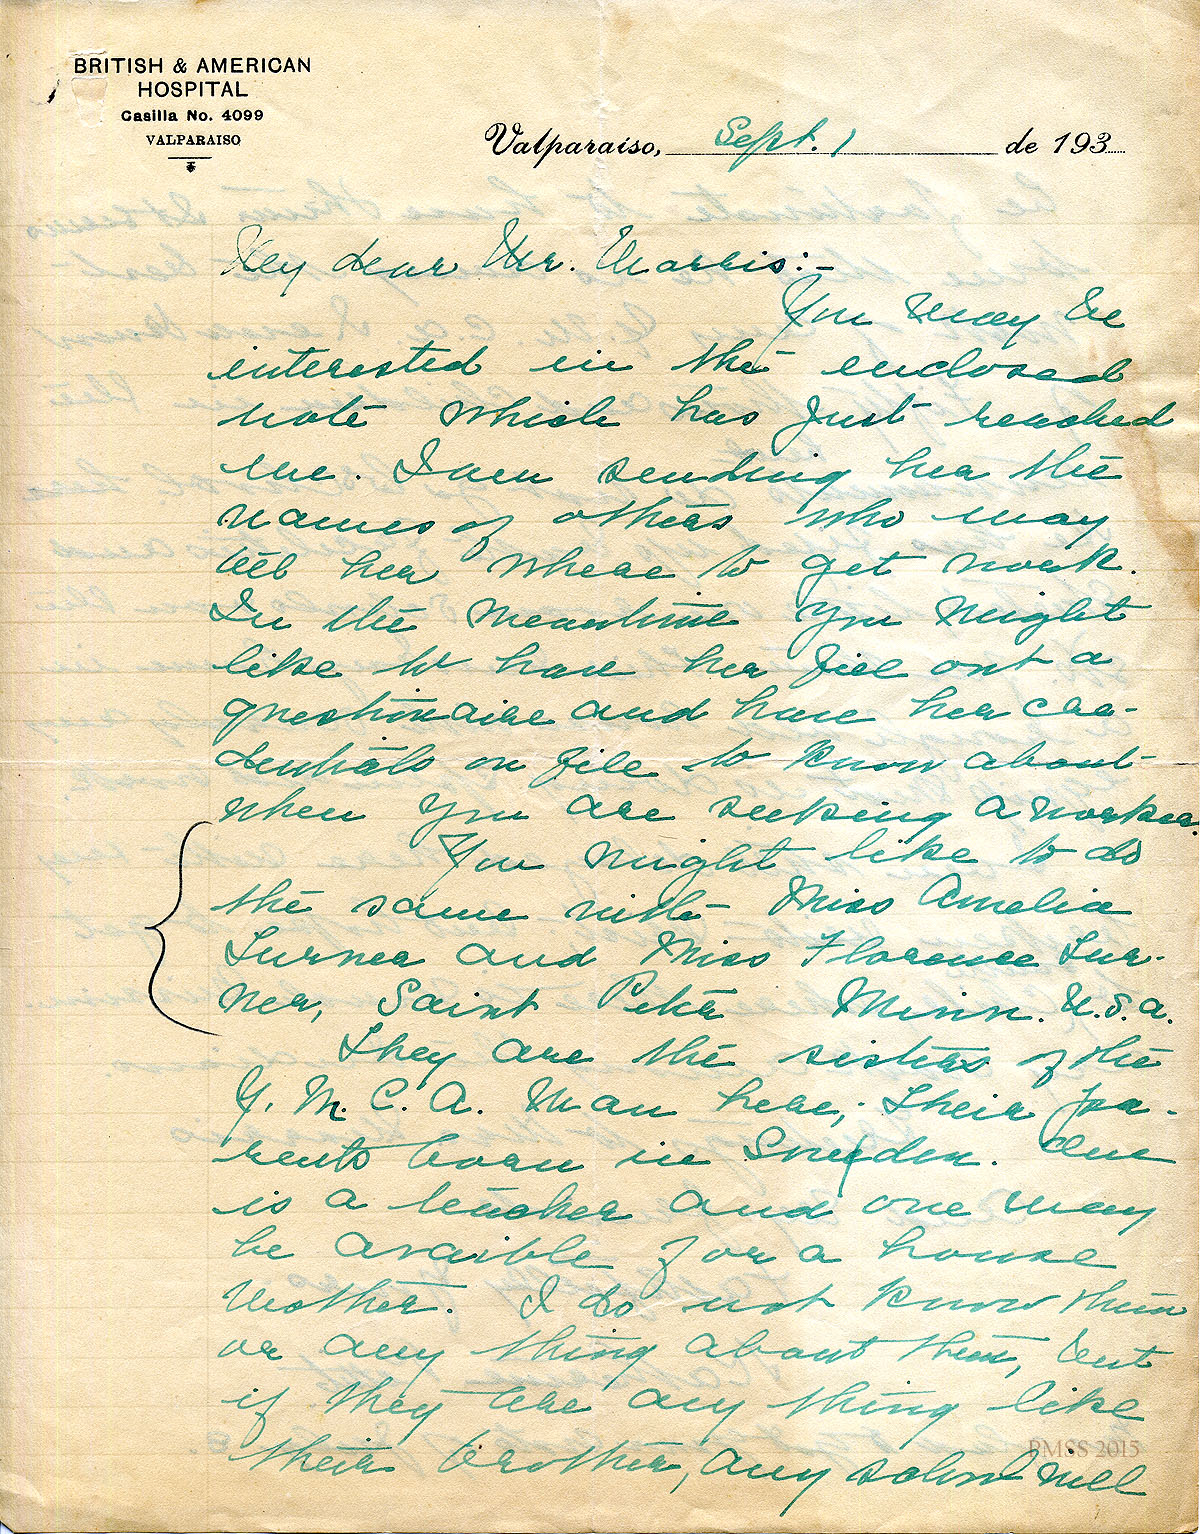 BRITISH & AMERICAN
HOSPITAL
Casilla No. 4099
VALPARAISO
Valparaiso, Sept. 1 de 193
My dear Mr. Morris:-
You may be
interested in the enclosed
note which has just reached
me. I am sending her the
names of others who may
tell her where to get work.
In the meantime you might
like to have her fill out a
questionaire and have her cre-
dentials on file to know about
when you are seeking a worker.
You might like to do
the same with Miss Amelia
Turner and Miss Florence Tur-
ner, Saint Peter Minn. U.S.A.
They are the sisters of the
Y. M. C. A. Man here,- Their pa-
rents born in Sweden. One
is a teacher and one may
be avaible for a house
Mother. I do not know them
or any thing about them, but
if they are any thing like
their brother, any school will
PMSS 2015